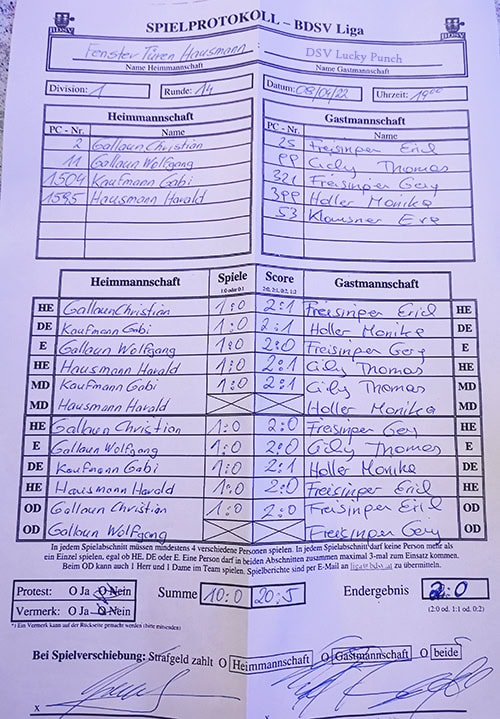 SPIELPROTOKOLL – BDSV Liga
BDSV BDSV
Fenster Türen Hausmann : DSV Lucky Punch
Name Heimmannschaft Name Gastmannschaft
Division: 1 Runde: 14 Datum: 08/04/22 Uhrzeit: 19°°
Heimmannschaft Gastmannschaft
PC - Nr. Name PC - Nr. Name
2 Gallaun Christian 25 Freisinger Erich
11 Gallaun Wolfgang Cily Thomas
1504 Kaufmann Gabi 321 Freisinger Gery
1595 Hausmann Harald Holler Monika
53 Klausner Eva
Heimmannschaft Spiele Score Gastmannschaft
1:0 oder 0:1 2:0, 2:1, 0:2, 1:2
HE Gallaun Christian 1:0 2:1 Freisinger Erich HE
DE Kaufmann Gabi 1:0 2:1 Holler Monika DE
E Gallaun Wolfgang 1:0 2:0 Freisinger Gery E
HE Hausmann Harald 1:0 2:1 Cily Thomas HE
MD Kaufmann Gabi 1:0 2:1 Cily Thomas MD
MD Hausmann Harald Holler Monika MD
HE Gallaun Christian 1:0 2:0 Freisinger Gery HE
E Gallaun Wolfgang 1:0 2:0 Cily Thomas E
DE Kaufmann Gabi 1:0 2:1 Holler Monika DE
HE Hausmann Harald 1:0 2:0 Freisinger Erich HE
OD Gallaun Christian 1:0 2:0 Freisinger Erich OD
OD Gallaun Wolfgang Freisinger Gery OD
In jedem Spielabschnitt müssen mindestens 4 verschiedene Personen spielen. In jedem Spielabschnitt darf keine Person mehr als
ein Einzel spielen, egal ob HE, DE oder E. Eine Person darf in beiden Abschnitten zusammen maximal 3-mal zum Einsatz kommen.
Beim OD kann auch 1 Herr und 1 Dame im Team spielen. Spielberichte sind per E-Mail an liga@bdsv.at zu übermitteln.
Protest: O Ja O Nein Summe 10:0 20:5 Endergebnis 2:0
Vermerk: O Ja O Nein (2:0 od. 1:1 od. 0:2)
*) Ein Vermerk kann auf der Rückseite gemacht werden (bitte mitsenden)
Bei Spielverschiebung: Strafgeld zahlt O Heimmannschaft O Gastmannschaft O beide
x x